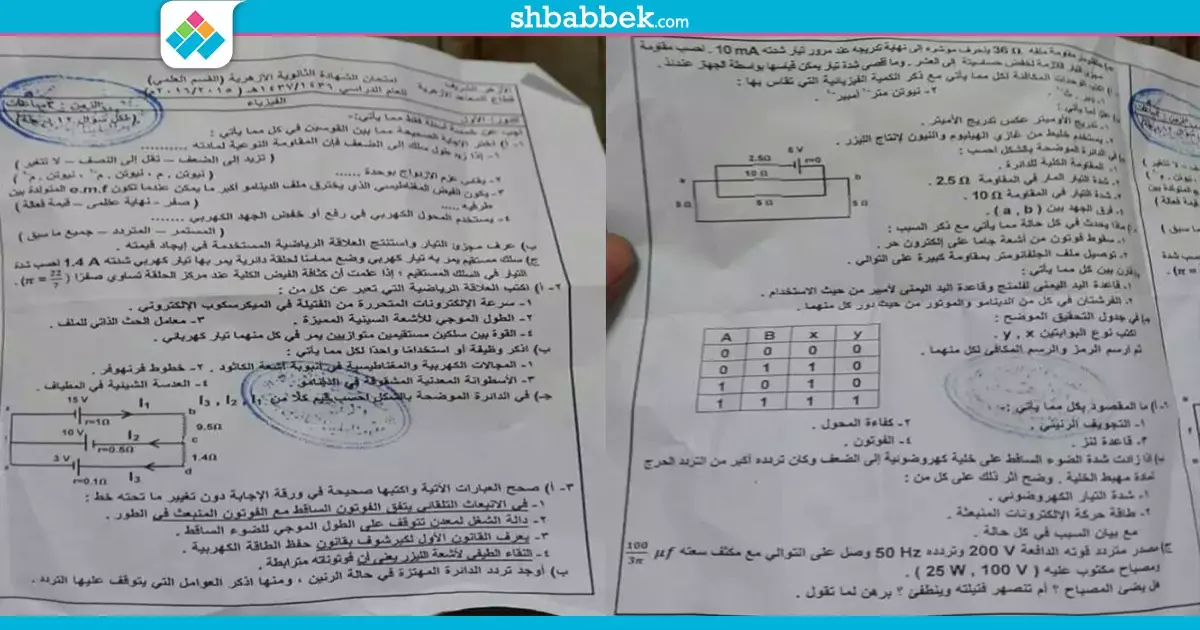 shbabbek.com
الأزهر الشريف
قطاع المعاهد الأزهرية
امتحان الشهادة الثانوية الأزهرية (القسم العلمي)
للعام الدراسي ١٤٣٦/١٤٣٧هـ (٢٠١٥/٢٠١٦م)
الفيزياء
أجب عن خمسة أسئلة فقط مما يأتي:-
١- أ) اختر الإجابة الصحيحة مما بين القوسين في كل مما يأتي :
١- إذا زيد طول سلك إلى الضعف فإن المقاومة النوعية لمادته .........
( تزيد إلى الضعف – تقل إلى النصف – لا تتغير )
٢- يقاس عزم الازدواج بوحدة ......
٣- يكون الفيض المغناطيسي الذي يخترق ملف الدينامو أكبر ما يمكن عندما تكون e.m.f المتولدة بين
طرفيه ..... ( صفر – نهاية عظمى – قيمة فعالة )
٤- يستخدم المحول الكهربي في رفع أو خفض الجهد الكهربي ........
( المستمر – المتردد – جميع ما سبق )
ب) عرف مجزئ التيار واستنتج العلاقة الرياضية المستخدمة في إيجاد قيمته .
ج) سلك مستقيم يمر به تيار كهربي وضع مماسًا لحلقة دائرية يمر بها تيار كهربي شدته 1.4 A احسب شدة
التيار في السلك المستقيم ؛ إذا علمت أن كثافة الفيض الكلية عند مركز الحلقة تساوي صفرًا ( π = 22/7 ) .
٢- أ) اكتب العلاقة الرياضية التي تعبر عن كل من :
١- سرعة الإلكترونات المتحررة من الفتيلة في الميكرسكوب الإلكتروني .
٢- الطول الموجي للأشعة السينية المميزة . ٣- معامل الحث الذاتي للملف .
٤- القوة بين سلكين مستقيمين متوازيين يمر في كل منهما تيار كهربائي .
ب) اذكر وظيفة أو استخدامًا واحدًا لكل مما يأتي :
١- المجالات الكهربية والمغناطيسية في أنبوبة أشعة الكاثود . ٢- خطوط فرنهوفر .
٣- الأسطوانة المعدنية المشقوقة في الدينامو ٤- العدسة الشيئية في المطياف .
جـ) في الدائرة الموضحة بالشكل احسب قيم كلًا من I3 , I2 , I1
15 V
r=1Ω
I1
b
9.5Ω
10 V
r=0.5Ω
I2
c
3 V
1.4Ω
r=0.1Ω
I3
d
٣- أ) صحح العبارات الآتية واكتبها صحيحة في ورقة الإجابة دون تغيير ما تحته خط :
١- في الانبعاث التلقائي يتفق الفوتون الساقط مع الفوتون المنبعث في الطور .
٢- دالة الشغل لمعدن تتوقف على الطول الموجي للضوء الساقط .
٣- يعرف القانون الأول لكيرشوف بقانون حفظ الطاقة الكهربية .
٤- النقاء الطيفي لأشعة الليزر يعني أن فوتوناته مترابطة .
ب) أوجد تردد الدائرة المهتزة في حالة الرنين ، ومنها اذكر العوامل التي يتوقف عليها التردد .
36 Ω ينحرف مؤشره إلى نهاية تدريجه عند مرور تيار شدته 10 mA . احسب مقاومة
مجزئ التيار اللازمة لخفض حساسيته إلى العشر . وما أقصى شدة تيار يمكن قياسها بواسطة الجهاز عندئذ .
الوحدات المكافئة لكل مما يأتي مع ذكر الكمية الفيزيائية التي تقاس بها :
١- تدريج الأوميتر عكس تدريج الأميتر .
٢- يستخدم خليط من غازي الهيليوم والنيون لإنتاج الليزر .
في الدائرة الموضحة بالشكل احسب :
١- المقاومة الكلية للدائرة .
٢- شدة التيار المار في المقاومة 2.5 Ω
٣- شدة التيار في المقاومة 10 Ω
٤- فرق الجهد بين ( a , b ) .
6 V
2.5Ω
r=0
10 Ω
a
b
5 Ω
5 Ω
5 Ω
ماذا يحدث في كل حالة مما يأتي مع ذكر السبب :
١- سقوط فوتون من أشعة جاما على إلكترون حر .
٢- توصيل ملف الجلفانومتر بمقاومة كبيرة على التوالي .
قارن بين كل مما يأتي :
١- قاعدة اليد اليمنى لفلمنج وقاعدة اليد اليمنى لأمبير من حيث الاستخدام .
٢- الفرشتان في كل من الدينامو والموتور من حيث دور كل منهما .
في جدول التحقيق الموضح :
اكتب نوع البوابتين y , x .
ثم ارسم الرمز والرسم المكافئ لكل منهما .
A B x y
0 0 0 0
0 1 1 0
1 0 1 0
1 1 1 1
أ) ما المقصود بكل مما يأتي :-
١- التجويف الرنيني . ٢- كفاءة المحول .
٣- قاعدة لنز . ٤- الفوتون .
ب) إذا زادت شدة الضوء الساقط على خلية كهروضوئية إلى الضعف وكان تردده أكبر من التردد الحرج
لمادة مهبط الخلية . وضح أثر ذلك على كل من :
١- شدة التيار الكهروضوئي .
٢- طاقة حركة الإلكترونات المنبعثة .
مع بيان السبب في كل حالة .
ج) مصدر متردد قوته الدافعة 200 V وتردده 50 Hz وصل على التوالي مع مكثف سعته 100/3π μf
ومصباح مكتوب عليه ( 25 W , 100 V ) .
هل يضئ المصباح ؟ أم تنصهر فتيلته وينطفئ ؟ برهن لما تقول .